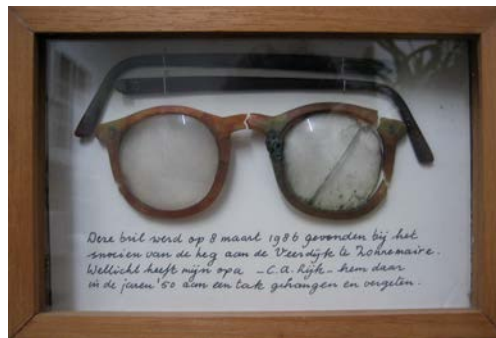 Deze bril werd op 8 maart 1986 gevonden bij het
snoeien van de heg aan de Veerdijk te Zonnemaire.
Wellicht heeft mijn opa – C.A. Rijk – hem daar
in de jaren '50 aan een tak gehangen en vergeten.